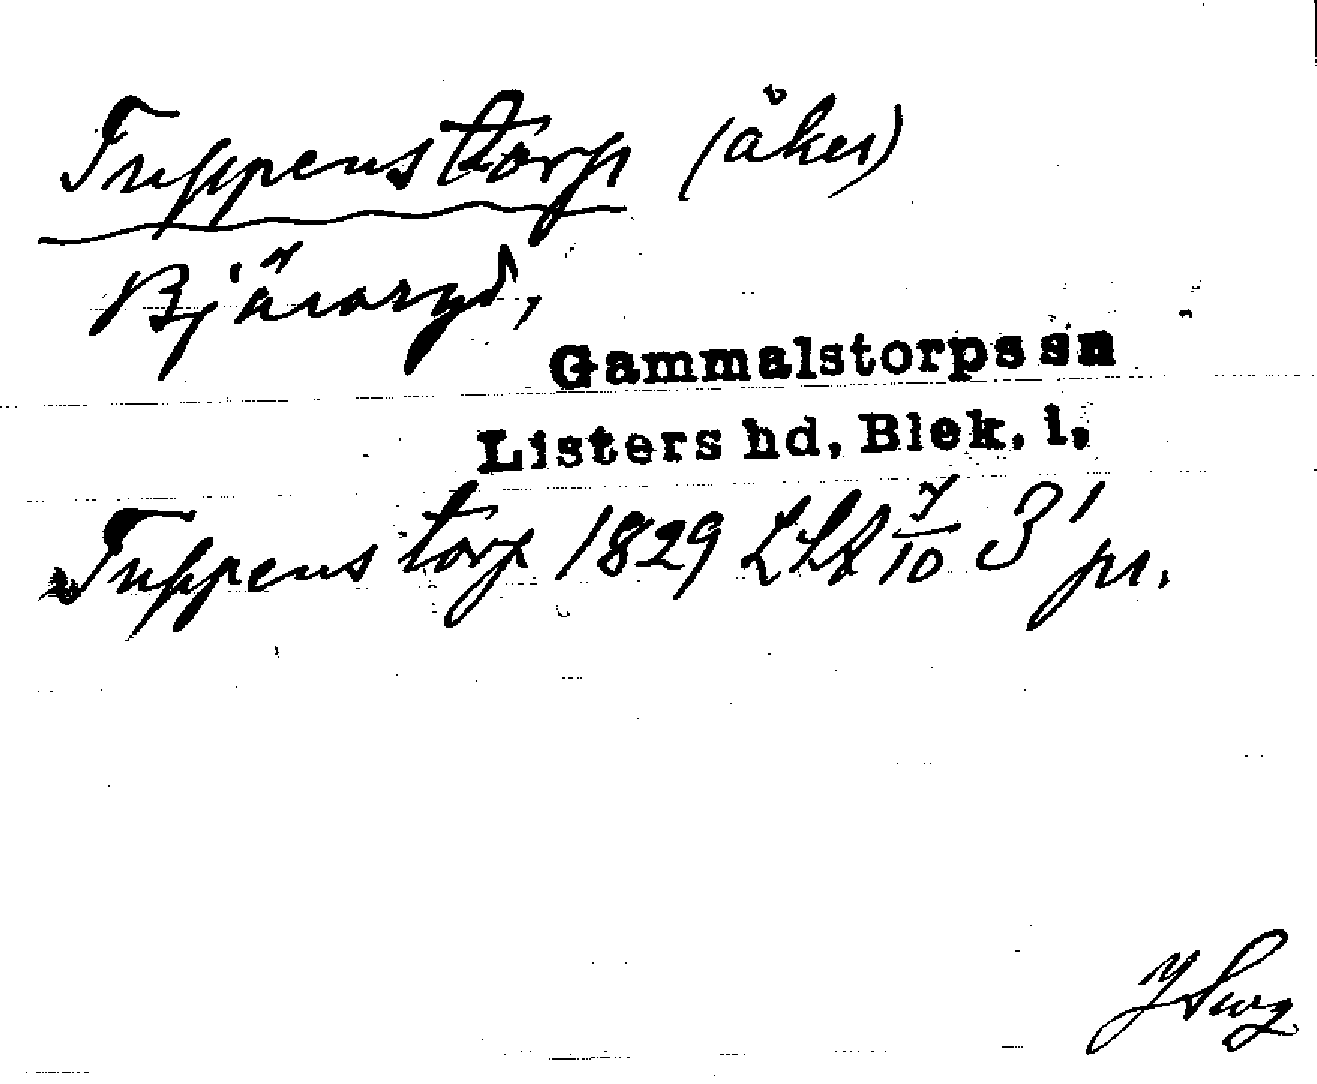 Tuppenstorp (åker)
Bjäraryd,
Gammalstorps sn
Listers hd, Blek. l,
Tuppenstorp 1829 LSA 7/10 3' pr.